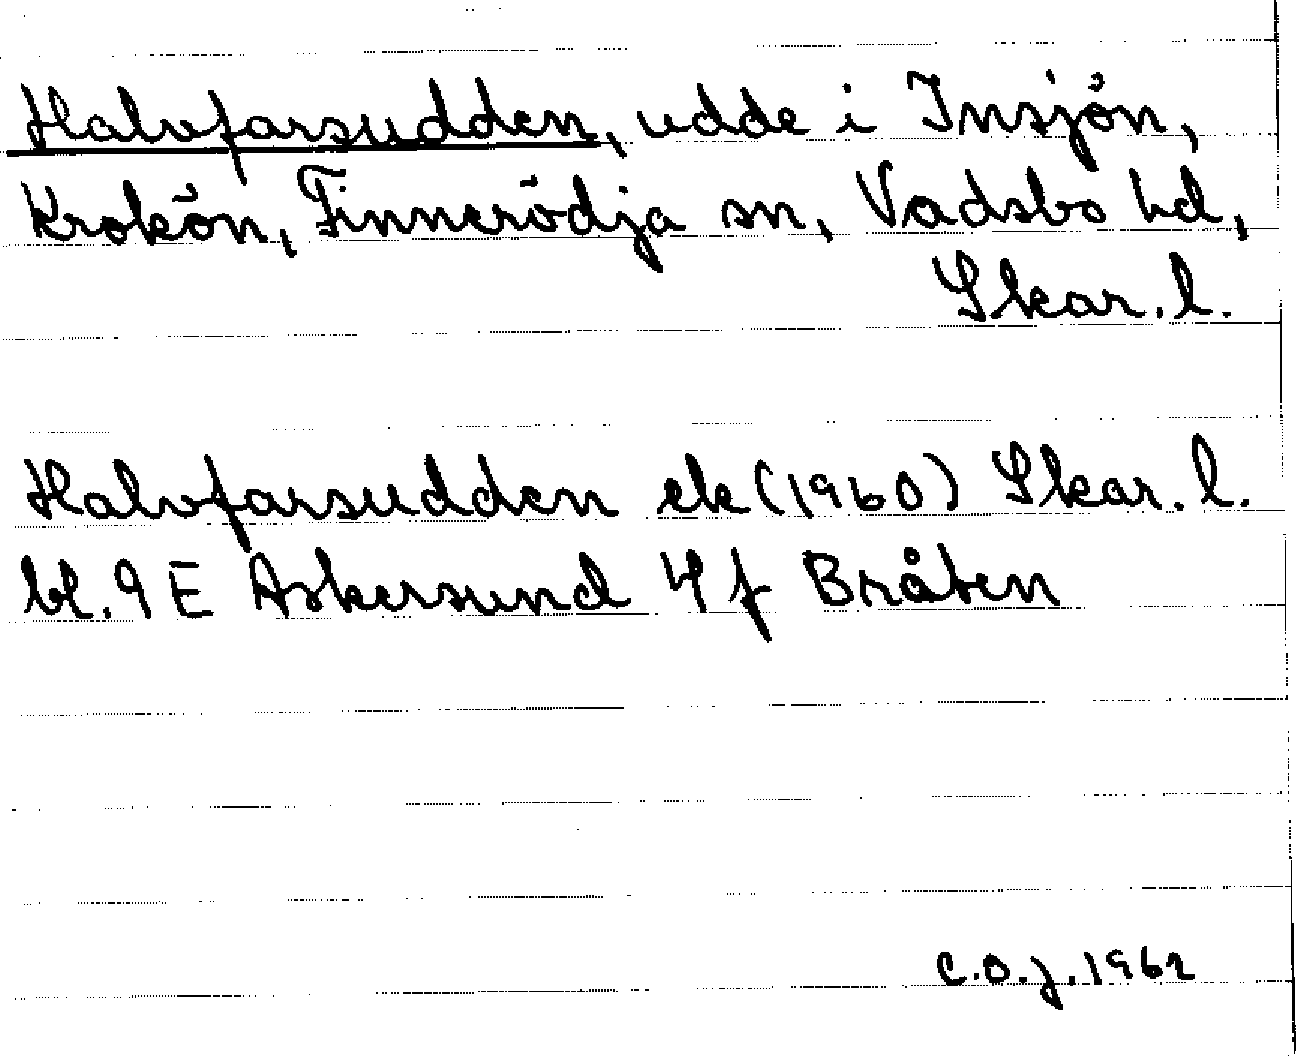 Halvfarsudden, udde i Insjön,
Krokön, Finnerödja sn, Vadsbo hd,
Skar. l.
Halvfarsudden ek (1960) Skar. l.
bl. 9 E Askersund 4 f Bråten
C.O.J. 1962